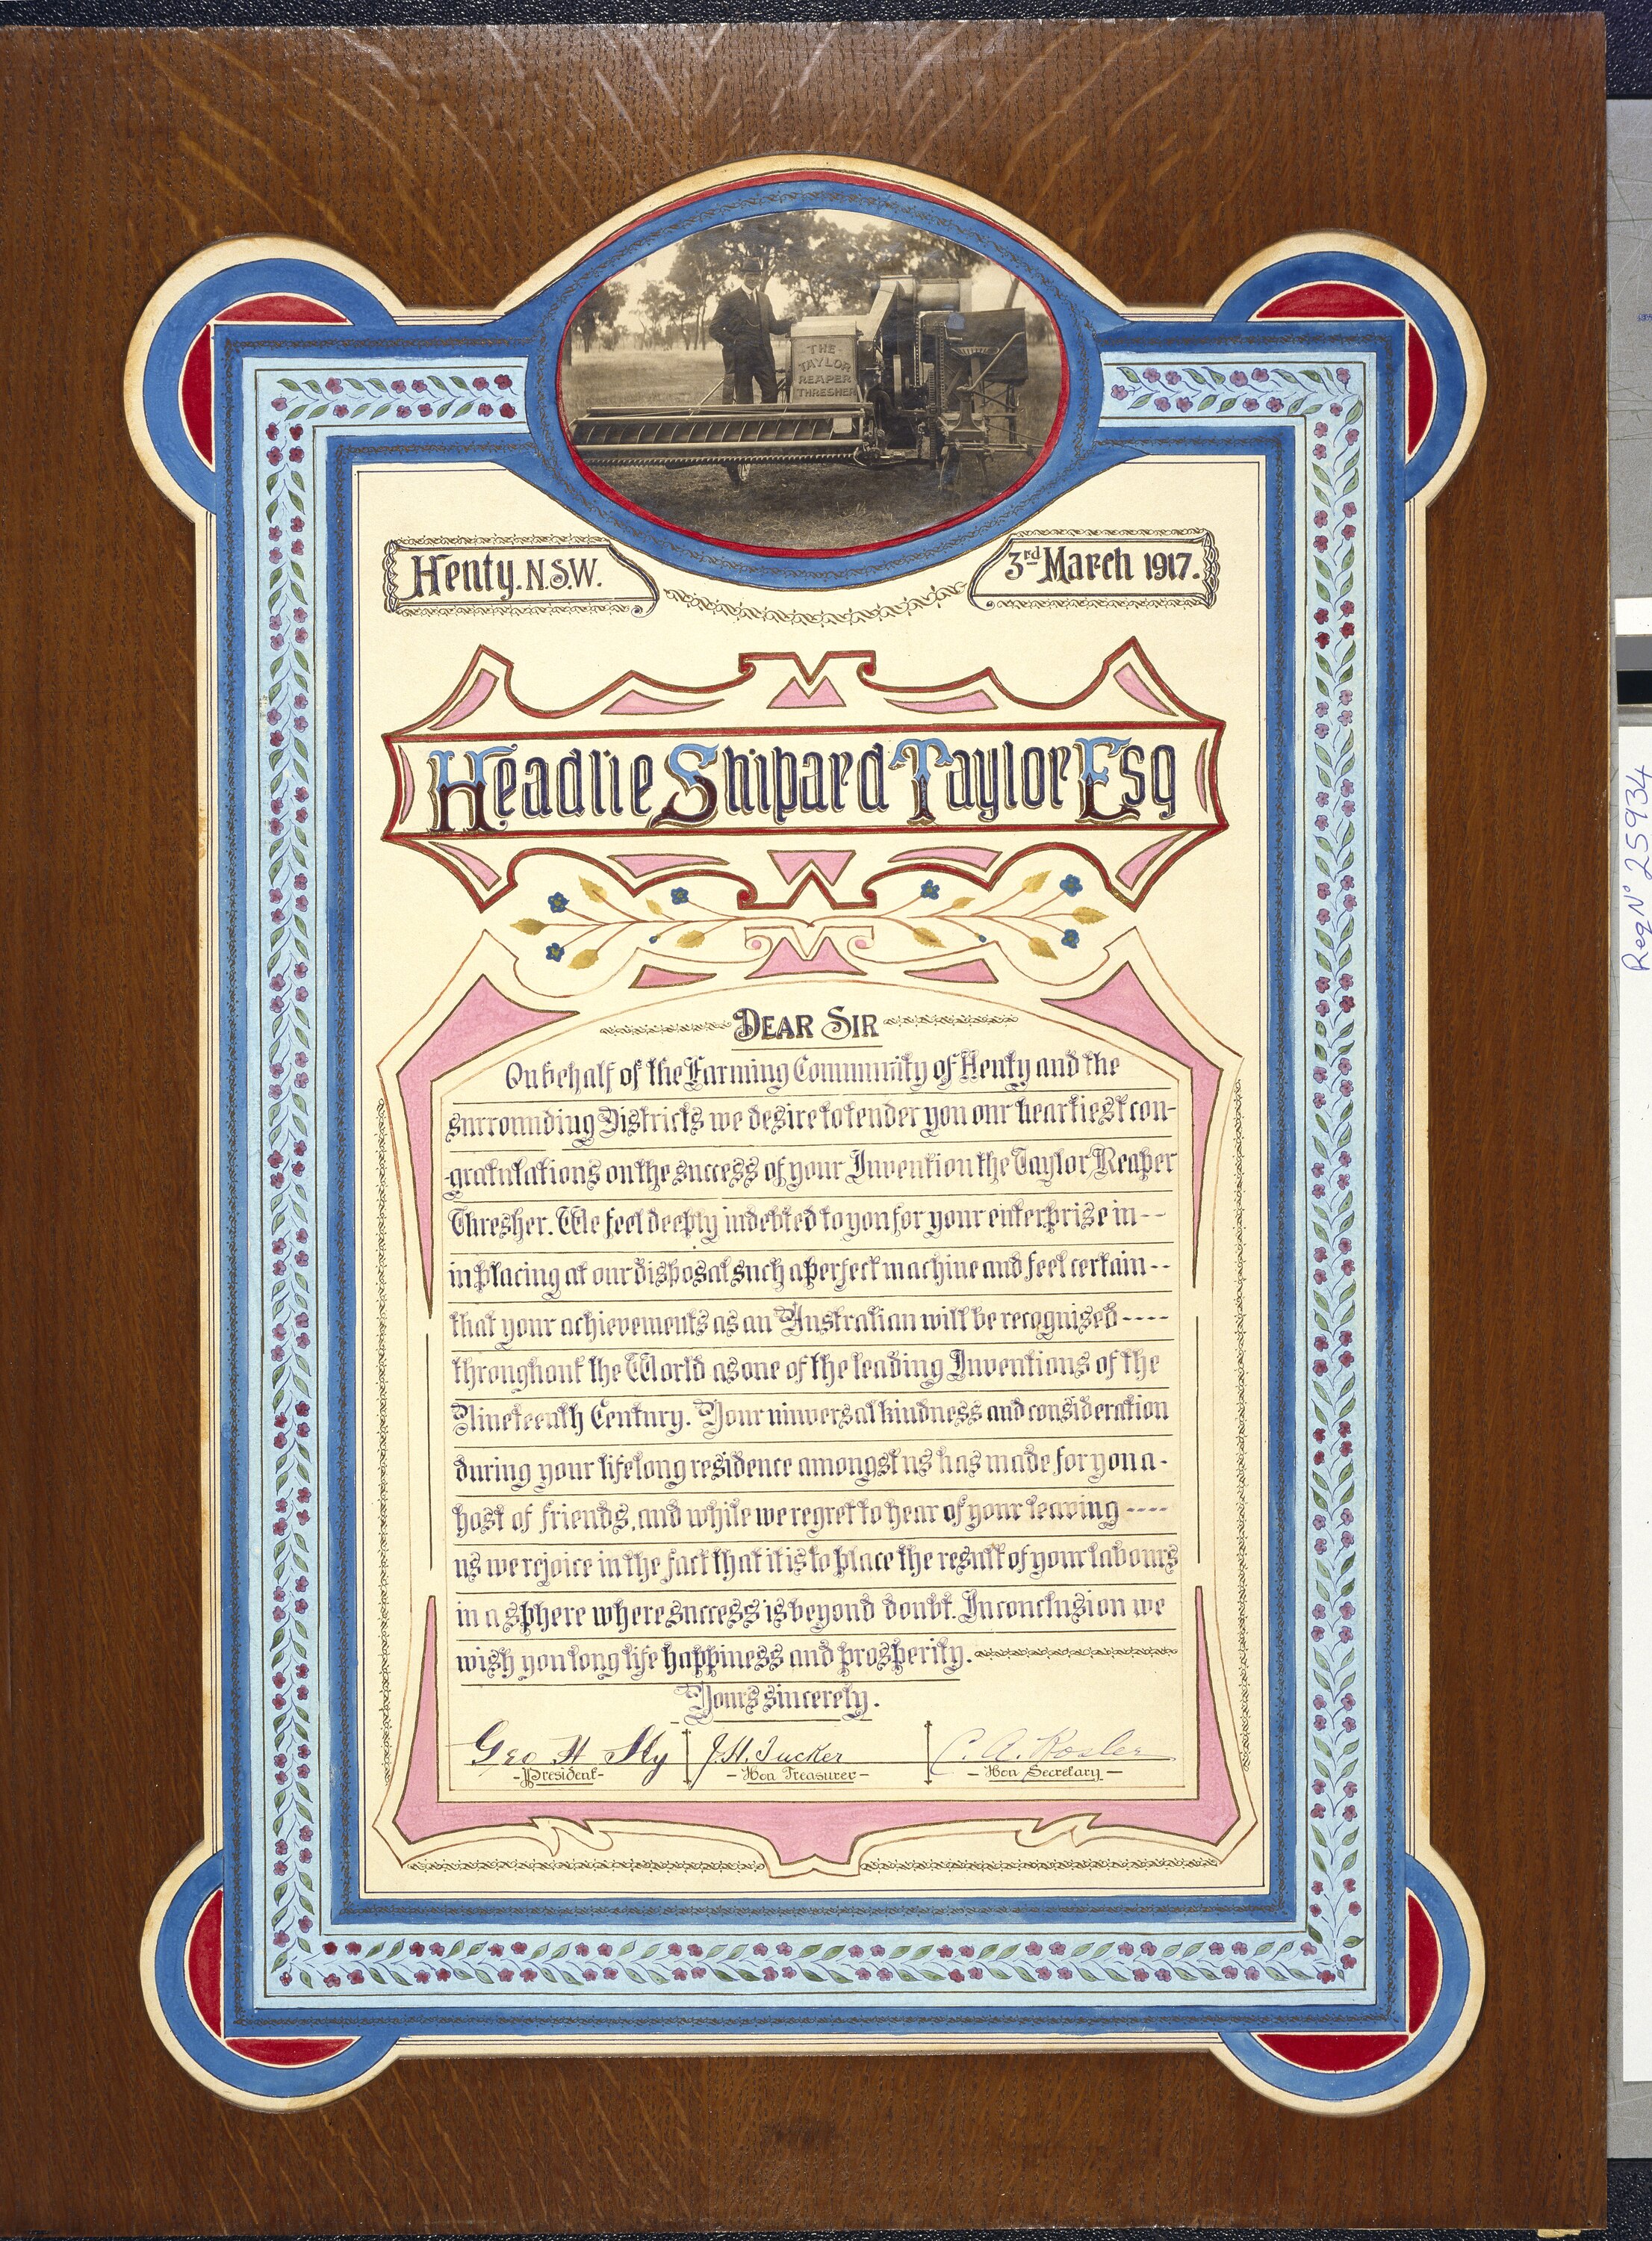 THE
TAYLOR
REAPER
THRESHER
Henty. N.S.W.
3rd March 1917.
Headlie Shipard Taylor Esq
DEAR SIR
On behalf of the Farming Community of Henty and the
surrounding Districts we desire to tender you our heartiest con-
-gratulations on the success of your Invention the Taylor Reaper
Thresher. We feel deeply indebted to you for your enterprise in--
in placing at our disposal such a perfect machine and feel certain--
that your achievements as an Australian will be recognised----
throughout the World as one of the leading Inventions of the
Nineteenth Century. Your ninversal kindness and consideration
during your lifelong residence amongst us has made for you a-
host of friends, and while we regret to hear of your leaving ----
us we rejoice in the fact that it is to place the result of your labours
in a sphere where success is beyond doubt. In conclusion we
wish you long life happiness and prosperity.
Yours sincerely.
Geo H Sly
J.H. Tucker
C. A. Rosler
-President-
- Hon Treasurer -
- Hon Secretary -
Reg No 25934